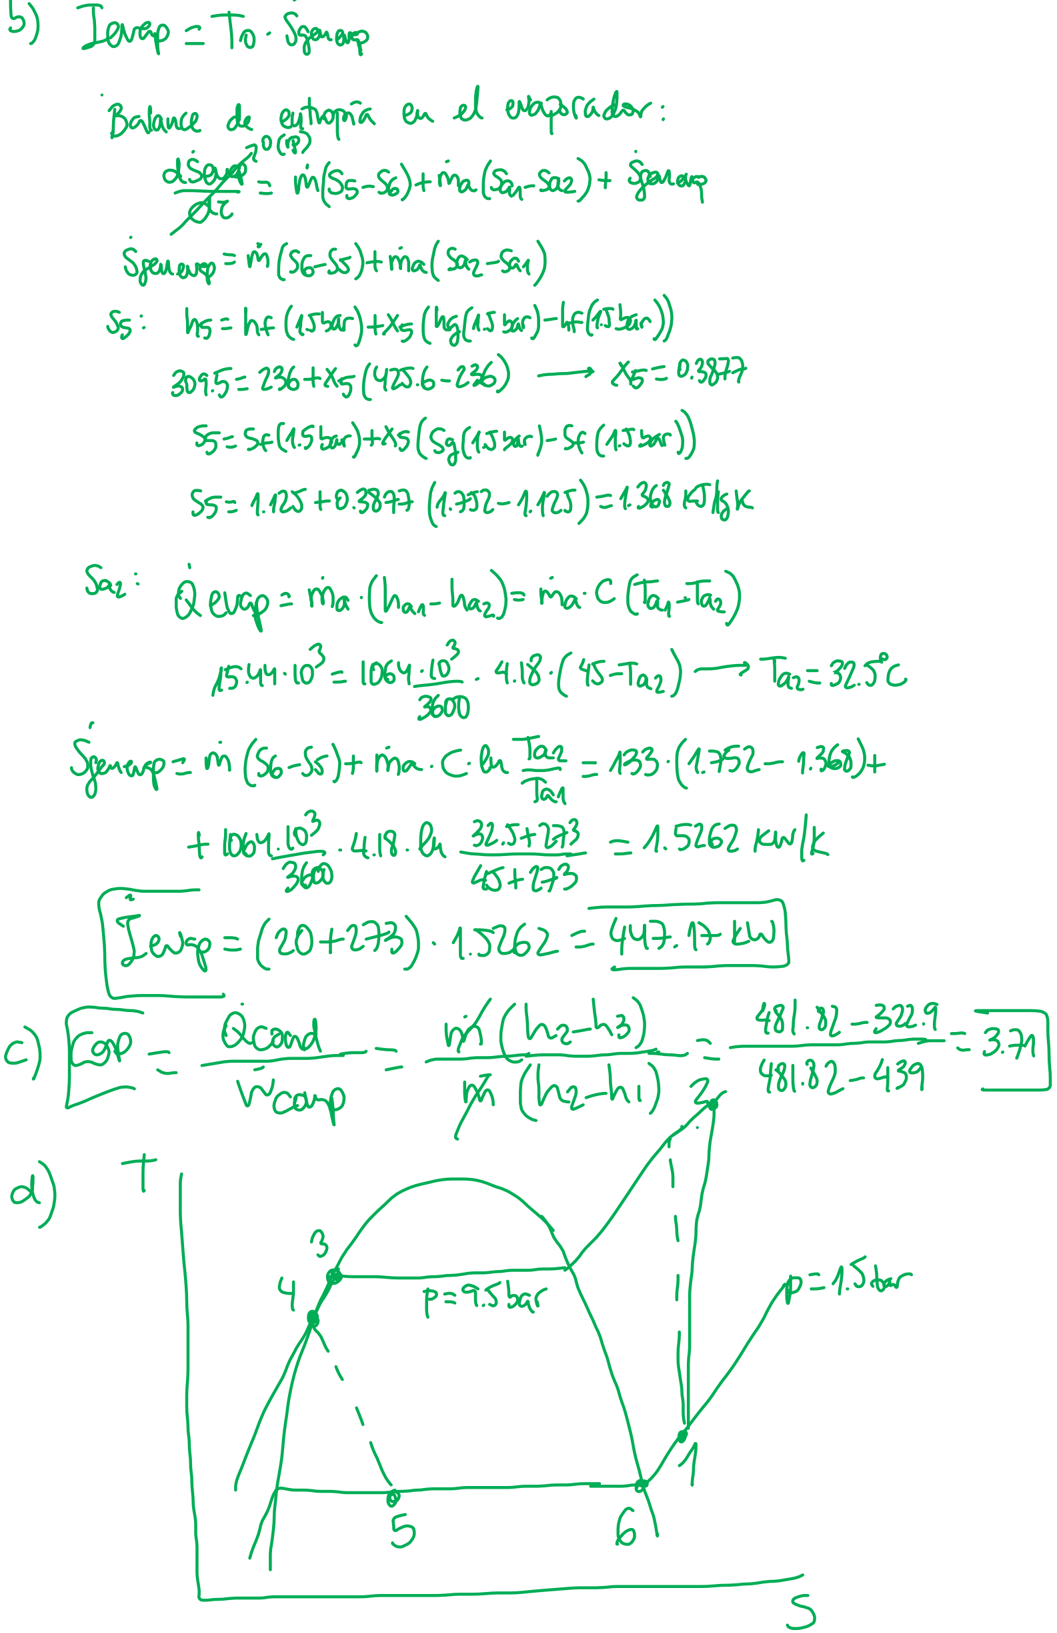 b) İevap = T0 · Ṡgenevap
Balance de entropía en el evaporador:
dSevap/dτ → 0 (RP) = ṁ(S5-S6)+ṁa(Sa1-Sa2) + Ṡgenevap
Ṡgenevap = ṁ(S6-S5)+ṁa(Sa2-Sa1)
S5: h5 = hf (1.5bar)+X5 (hg(1.5 bar)-hf(1.5bar))
309.5 = 236+X5 (425.6-236) → X5 = 0.3877
S5 = Sf(1.5bar)+X5 (Sg(1.5bar)-Sf (1.5bar))
S5 = 1.125+0.3877 (1.752-1.125) = 1.368 KJ/kgK
Sa2: Q̇evap = ṁa·(ha1-ha2) = ṁa·C (Ta1-Ta2)
15.44·10³ = 1064·10³/3600 · 4.18·(45-Ta2) → Ta2 = 32.5°C
Ṡgenevap = ṁ (S6-S5)+ ṁa·C·ln Ta2/Ta1 = 133·(1.752-1.368)+
+ 1064·10³/3600 · 4.18·ln 32.5+273/45+273 = 1.5262 KW/K
İevap = (20+273)·1.5262 = 447.17 KW
c) COP = Q̇cond/Ẇcomp = ṁ (h2-h3)/ṁ (h2-h1) = 481.82-322.9/481.82-439 = 3.71
d) T
2
3
4
p=9.5bar
p=1.5bar
1
5
6
S